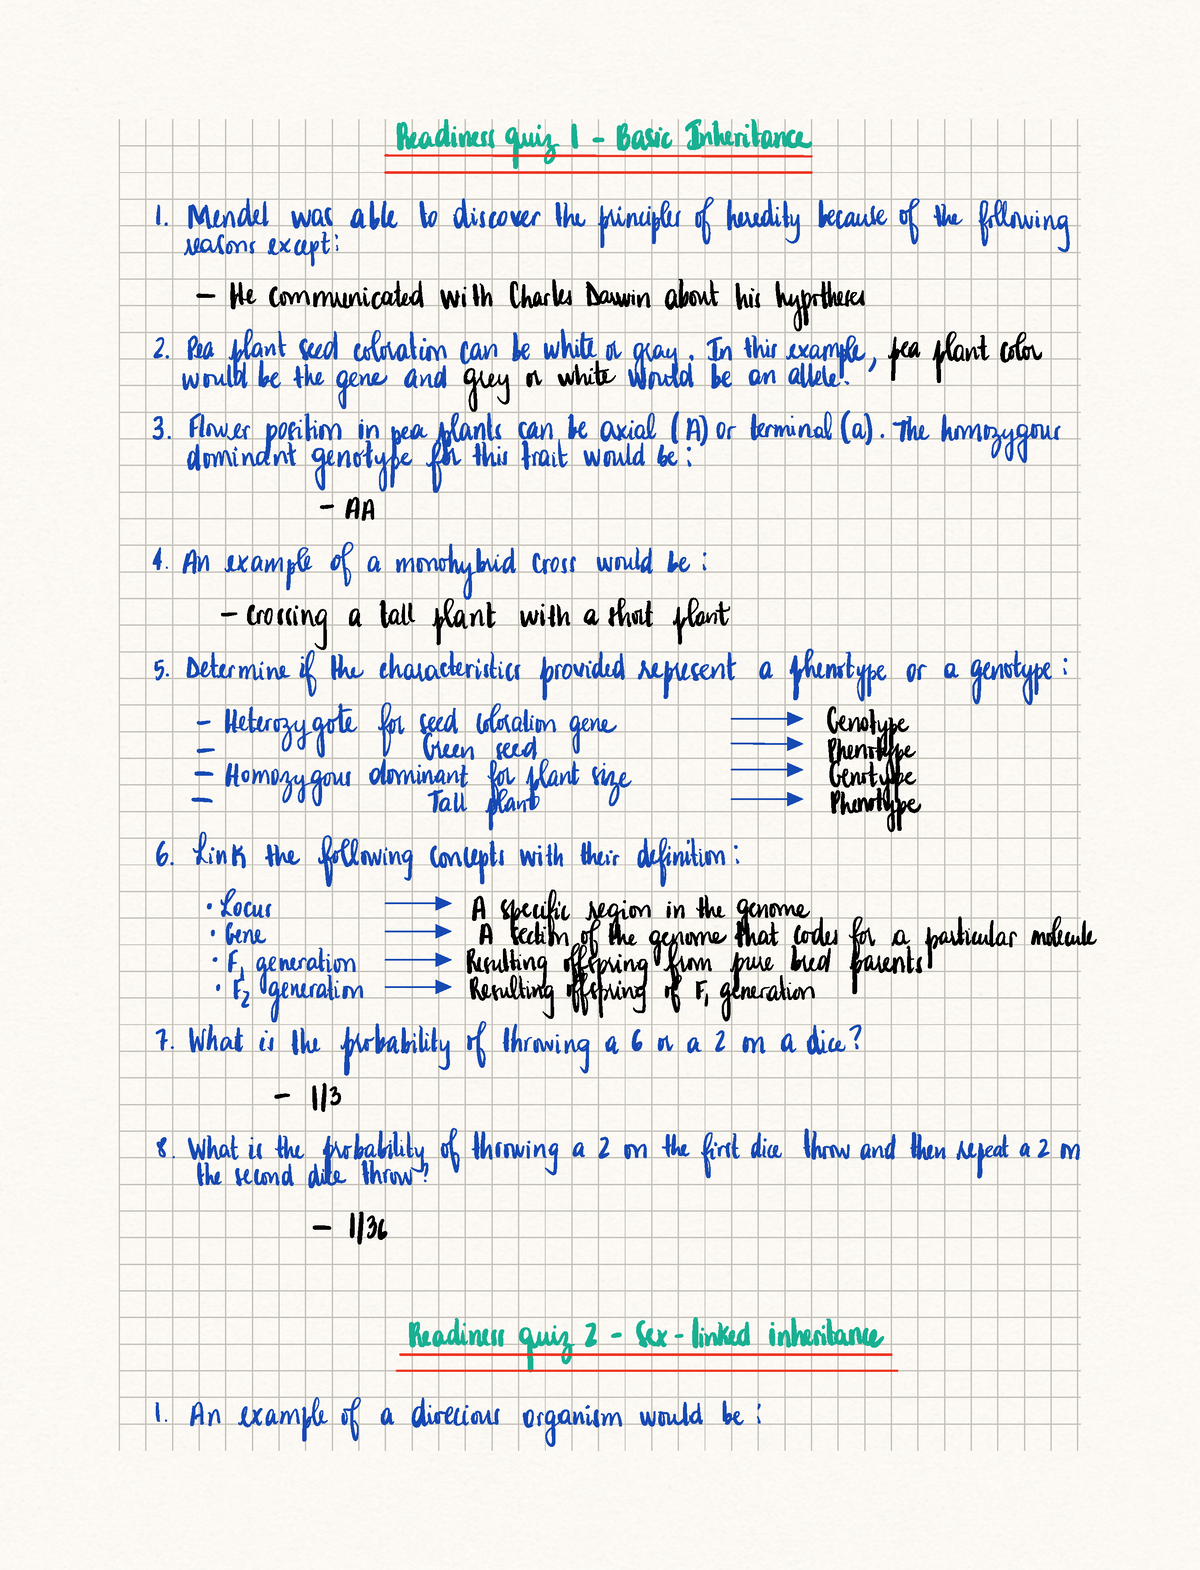 Readiness quiz 1 - Basic Inheritance
1. Mendel was able to discover the principles of heredity because of the following
reasons except:
- He communicated with Charles Darwin about his hypotheses
2. Pea plant seed coloration can be white or gray. In this example, pea plant color
would be the gene and grey or white would be an allele.
3. Flower position in pea plants can be axial (A) or terminal (a). The homozygous
dominant genotype for this trait would be:
- AA
4. An example of a monohybrid cross would be:
- Crossing a tall plant with a short plant
5. Determine if the characteristics provided represent a phenotype or a genotype:
- Heterozygote for seed coloration gene → Genotype
- Green seed → Phenotype
- Homozygous dominant for plant size → Genotype
- Tall plant → Phenotype
6. Link the following concepts with their definition:
• Locus → A specific region in the genome
• Gene → A section of the genome that codes for a particular molecule
• F₁ generation → Resulting offspring from pure bred parents
• F₂ generation → Resulting offspring of F₁ generation
7. What is the probability of throwing a 6 or a 2 on a dice?
- 1/3
8. What is the probability of throwing a 2 on the first dice throw and then repeat a 2 on
the second dice throw?
- 1/36
Readiness quiz 2 - Sex-linked inheritance
1. An example of a diœcious organism would be: